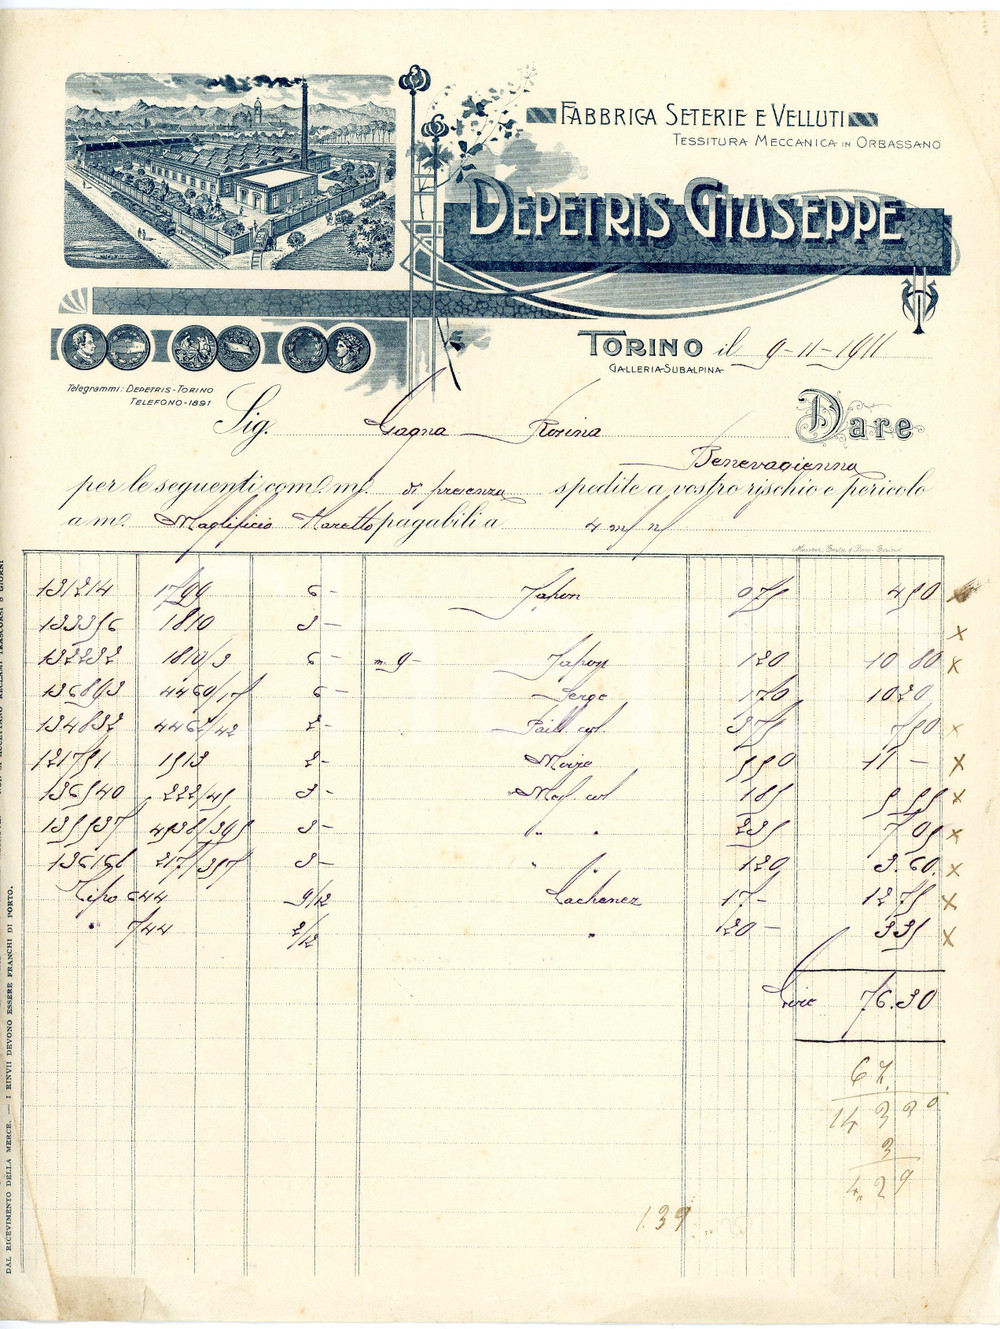 FABBRICA SETERIE E VELLUTI
TESSITURA MECCANICA IN ORBASSANO
DEPETRIS GIUSEPPE
TORINO il 9-11-1911
GALLERIA SUBALPINA
Telegrammi: DEPETRIS-TORINO
TELEFONO-1891
Sig. Gagna Rosina Dare
Benevagienna
per le seguenti com. mi. di presenza spedite a vostro rischio e pericolo
a m. Maglificio pagabili a 4 m/ n/
131214 1799 6 - Japon 075 450
133356 1810 3 -
132232 1810/3 6 - m. 9 - Japon 120 10 80
136893 4460/17 6 - Serge 170 1020
134832 4462/42 2 - Paill. col. 375 750
121751 1513 2 - 550 11 -
136540 222/45 3 - col 185 5 55
135537 4538/395 3 - " " 235 7 05
136166 217/357 3 - " " 120 3.60.
Tipo 644 9/12 Cachenez 17 - 1275
" 744 2/12 " 20 - 335
Lire 76.30
62
14 3 30
3
4.29
139
DAL RICEVIMENTO DELLA MERCE. — I RINVII DEVONO ESSERE FRANCHI DI PORTO.